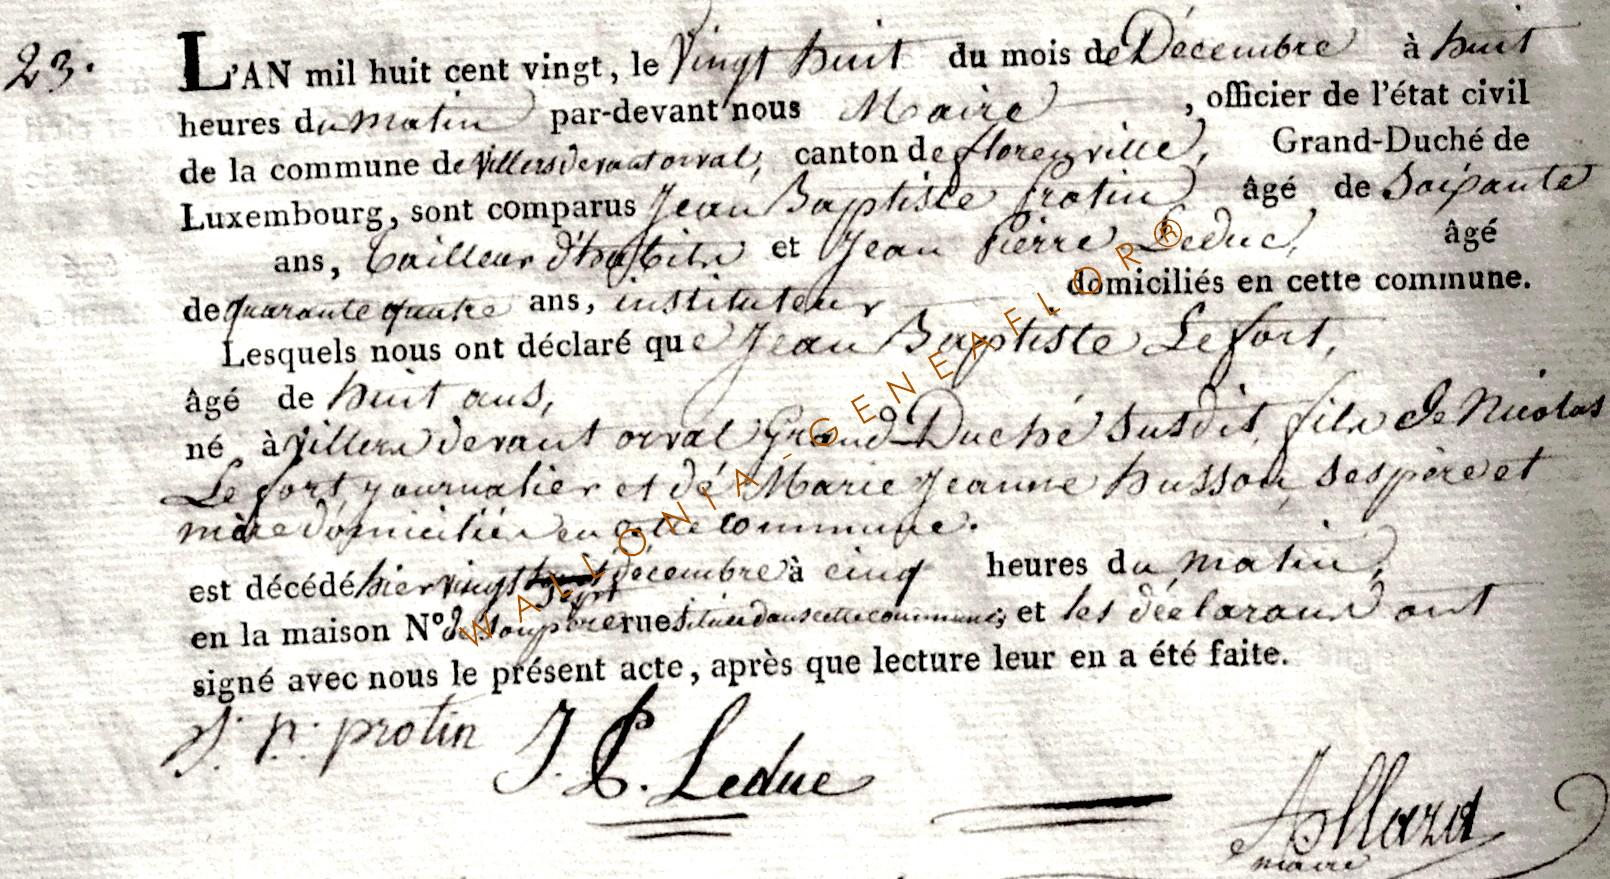 23.
L'AN mil huit cent vingt, le Vingt huit du mois de Décembre à huit
heures du matin par-devant nous Maire, officier de l'état civil
de la commune de Villersdevantorval, canton de florenville, Grand-Duché de
Luxembourg, sont comparus Jean Baptiste Protin âgé de Soixante
ans, tailleur d'habits et Jean Pierre Leduc, âgé
de quarante quatre ans, instituteur domiciliés en cette commune.
Lesquels nous ont déclaré que Jean Baptiste Lefort,
âgé de huit ans,
né à villers devant orval Grand Duché susdit, fils de Nicolas
Lefort, journalier et de Marie Jeanne husson, ses père et
mère domiciliés en cette commune.
est décédé hier vingt sept décembre à cinq heures du matin,
en la maison N° de son père rue située dans cette commune; et les déclarans ont
signé avec nous le présent acte, après que lecture leur en a été faite.
protin J. P. Leduc
maire
WALLONIA-GENEAFLOR®